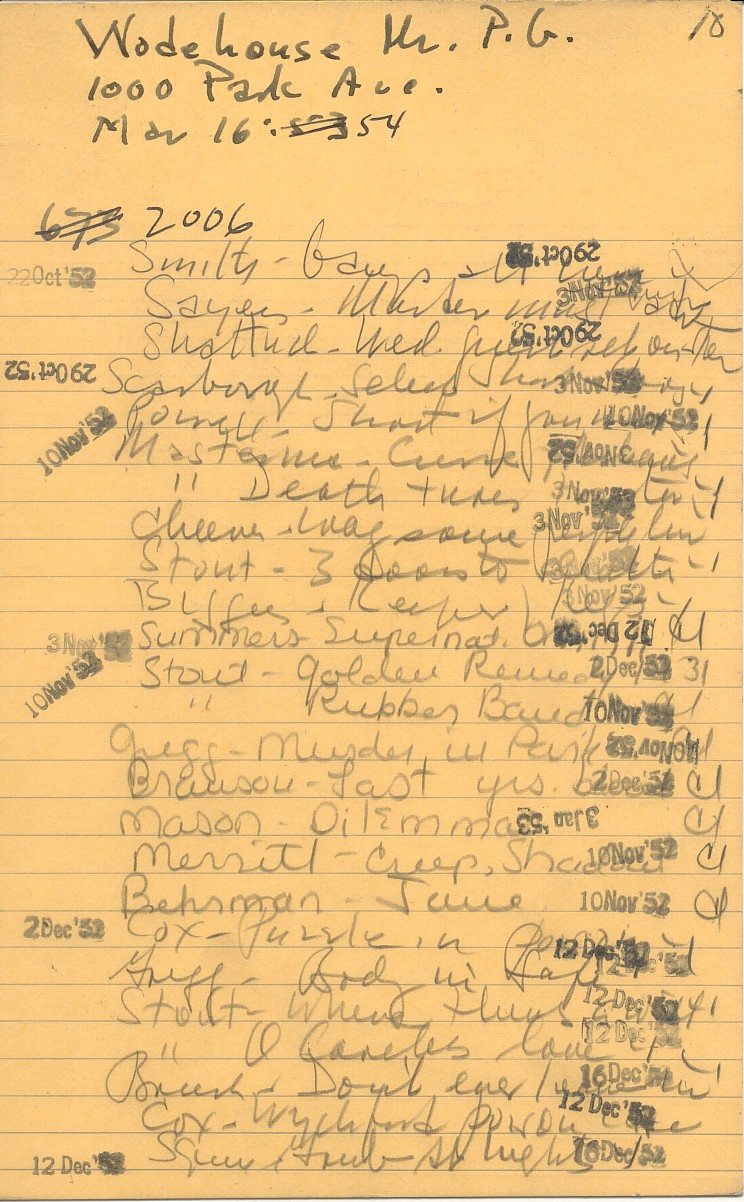 18
Wodehouse Mr. P.G.
1000 Park Ave.
Mar 16 : 53 54
673 2006
Smith - 29Oct'52
22Oct'52
Sayers - Murder must 3Nov'52
Shattuck - Med. 29Oct'52
29Oct'52 Scarborough - Select 3Nov'52
Powell - Short if you 10Nov'52
10Nov'52 Masterman - 3Nov'52
" Death turns 3Nov'52
Cheever - Way some 3Nov'52
Stout - 3 doors to death 3Nov'52
Biggers - Keeper Keys 3Nov'52
3Nov'52 Summers - Supernat. 12Dec'52 Cl
10Nov'52 Stout - Golden Remedy 2Dec'52 31
" Rubber Band 10Nov'52 Cl
Gregg - Murder in Park 10Nov'52 Cl
Branson - Last yrs. 2Dec'52 Cl
Mason - Dilemma 3Jan'53 Cl
Merritt - Creep, Shadow 10Nov'52 Cl
Behrman - Jane 10Nov'52 Cl
2Dec'52 Cox - Puzzle in 12Dec'52
Gregg - Body in 12Dec'52
Stout - Where There's 12Dec'52
" O Careless love 12Dec'52
Brush - Don't ever 16Dec'52
Cox - Wychford poison 12Dec'52
12Dec'52 16Dec'52